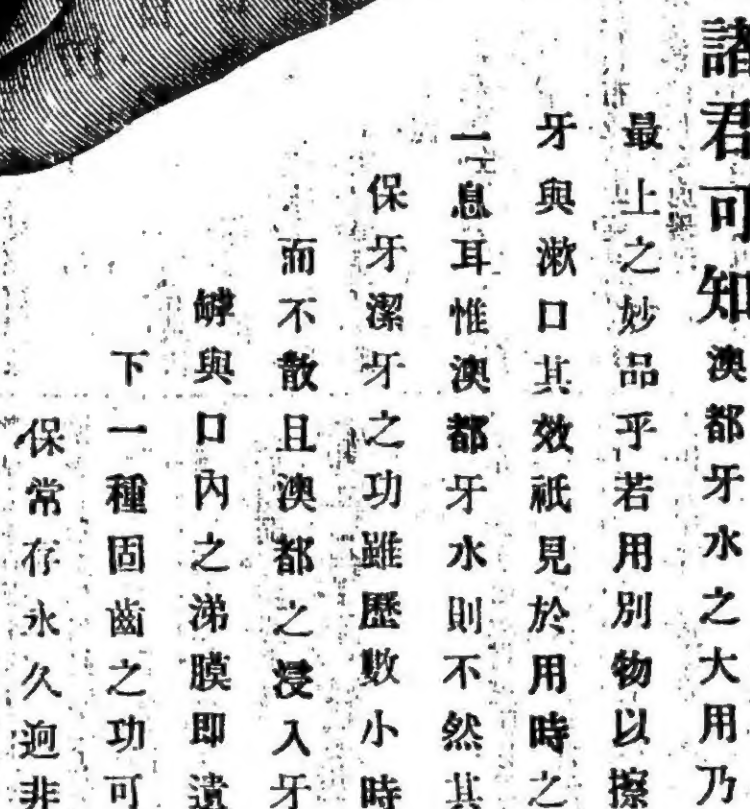 諸君可知澳都牙水之大用乃
最上之妙品乎若用別物以擦
牙與漱口其效祇見於用時之
一息耳惟澳都牙水則不然其
保牙潔牙之功雖歷數小時
而不散且澳都之浸入牙
罅與口內之涕膜即遺
下一種固齒之功可
保常存永久迥非